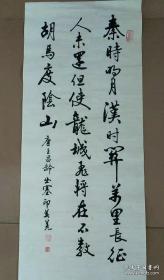 秦時明月漢时關萬里長征
人未還但使龍城飛將在不教
胡馬度陰山
唐王昌齡出塞